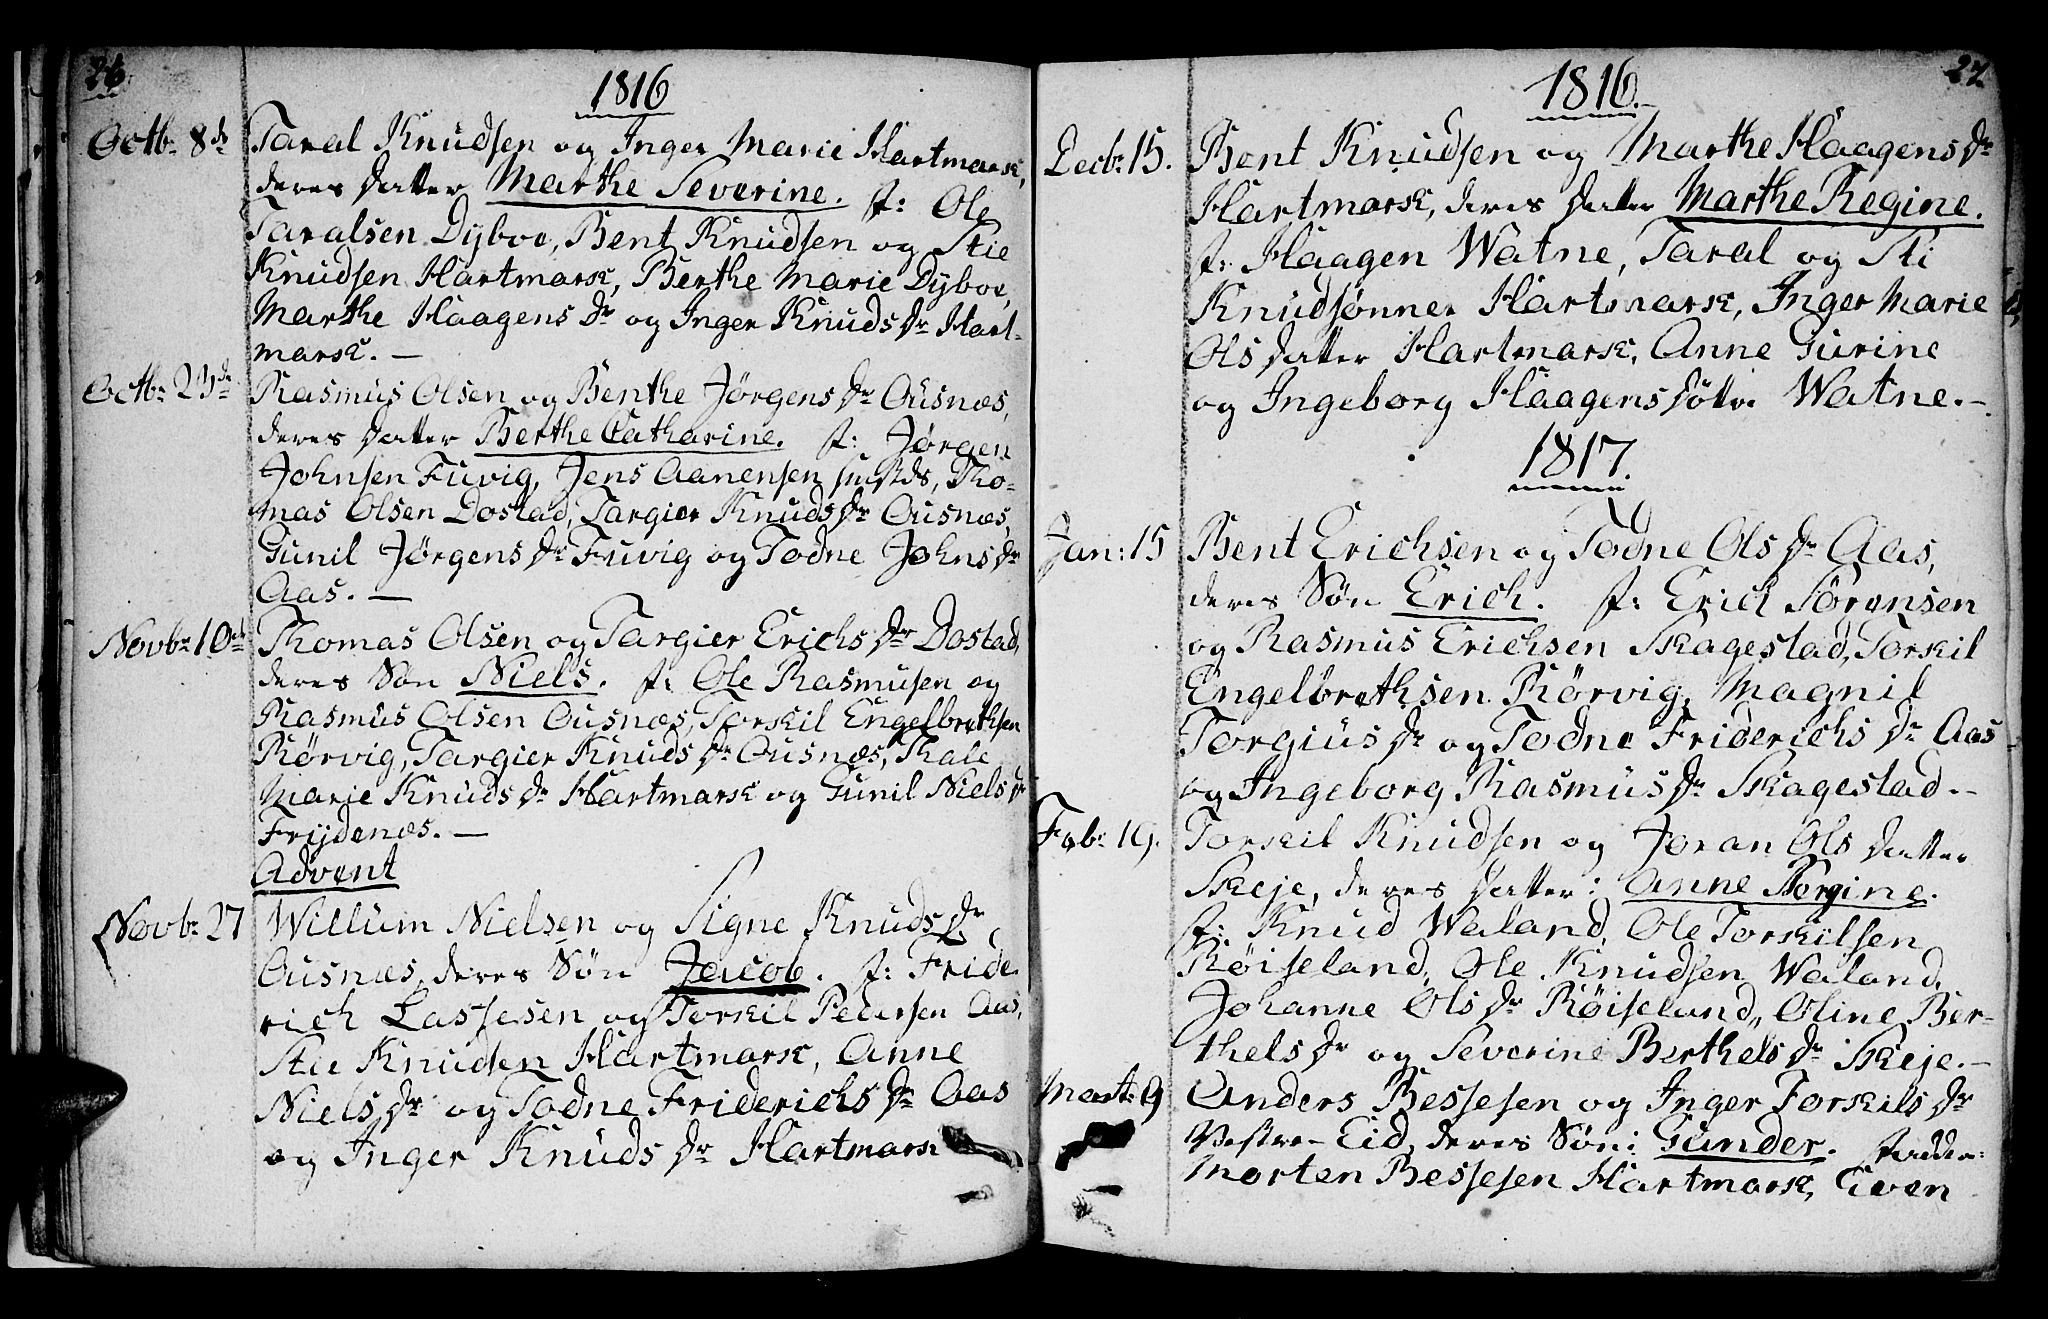 26.
1816
Octb: 8de Taral Knudsen og Inger Marie Hartmark,
deres Datter Marthe Severine. f: Ole
Taralsen Dyboe, Bent Knudsen og Stie
Knudsen Hartmark, Berthe Marie Dyboe,
Marthe Haagens Dr og Inger Knuds Dr Hart-
mark. —
Octb: Rasmus Olsen og Benthe Jørgens Dr Ousnæs,
deres Datter Berthe Catharine. f: Jørgen
Johnsen Fuvig, Jens Aanensen Tho-
mas Olsen Dostad, Targier Knuds Dr Ousnæs,
Gunil Jørgens Dr Fuvig og Todne Johns Dr
Aas. —
Novb: 10de Thomas Olsen og Targier Erichs Dr Dostad,
deres Søn Niels. f: Ole Rasmusen og
Rasmus Olsen Ousnæs, Torkil Engelbrethsen
Rørvig, Targier Knuds Dr Ousnæs, Thale
Marie Knuds Dr Hartmark og Gunil Niels Dr
Frydenæs. —
Advent
Novb: 27 Willum Nielsen og Signe Knuds Dr
Ousnæs, deres Søn Jacob. f: Fride
rich Lassesen og Torkil Pedersen Aas,
Stie Knudsen Hartmark, Anne
Niels Dr og Todne Friderichs Dr Aas
og Inger Knuds Dr Hartmark
27
1816.
Decb: 15. Bent Knudsen og Marthe Haagens Dr
Hartmark, deres Datter Marthe Regine.
f: Haagen Watne, Taral og Sti
Knudsønner Hartmark, Inger Marie
Ols Datter Hartmark, Anne Gurine
og Ingeborg Haagens Døttr. Watne. -
1817.
Jan: 15 Bent Erichsen og Todne Ols Dr Aas,
deres Søn Erich. f: Erich Sørensen
og Rasmus Erichsen Skagestad, Torkil
Engelbrethsen Rørvig, Magnil
Torgius Dr og Todne Friderichs Dr Aas
og Ingeborg Rasmus Dr Skagestad. -
Febr: 19. Torkil Knudsen og Joran Ols Datter
Skeje, deres Datter: Anne Torgine.
f: Knud Waland, Ole Torkilsen
Røiseland, Ole Knudsen Waland,
Johanne Ols Dr Røiseland, Oline Ber-
thels Dr og Severine Berthels Dr Skeje. -
Marti: 9 Anders Bessesen og Inger Torkils Dr
Vestre-Eid, deres Søn: Gunder. Fadder:
Morten Bessesen Hartmark, Even